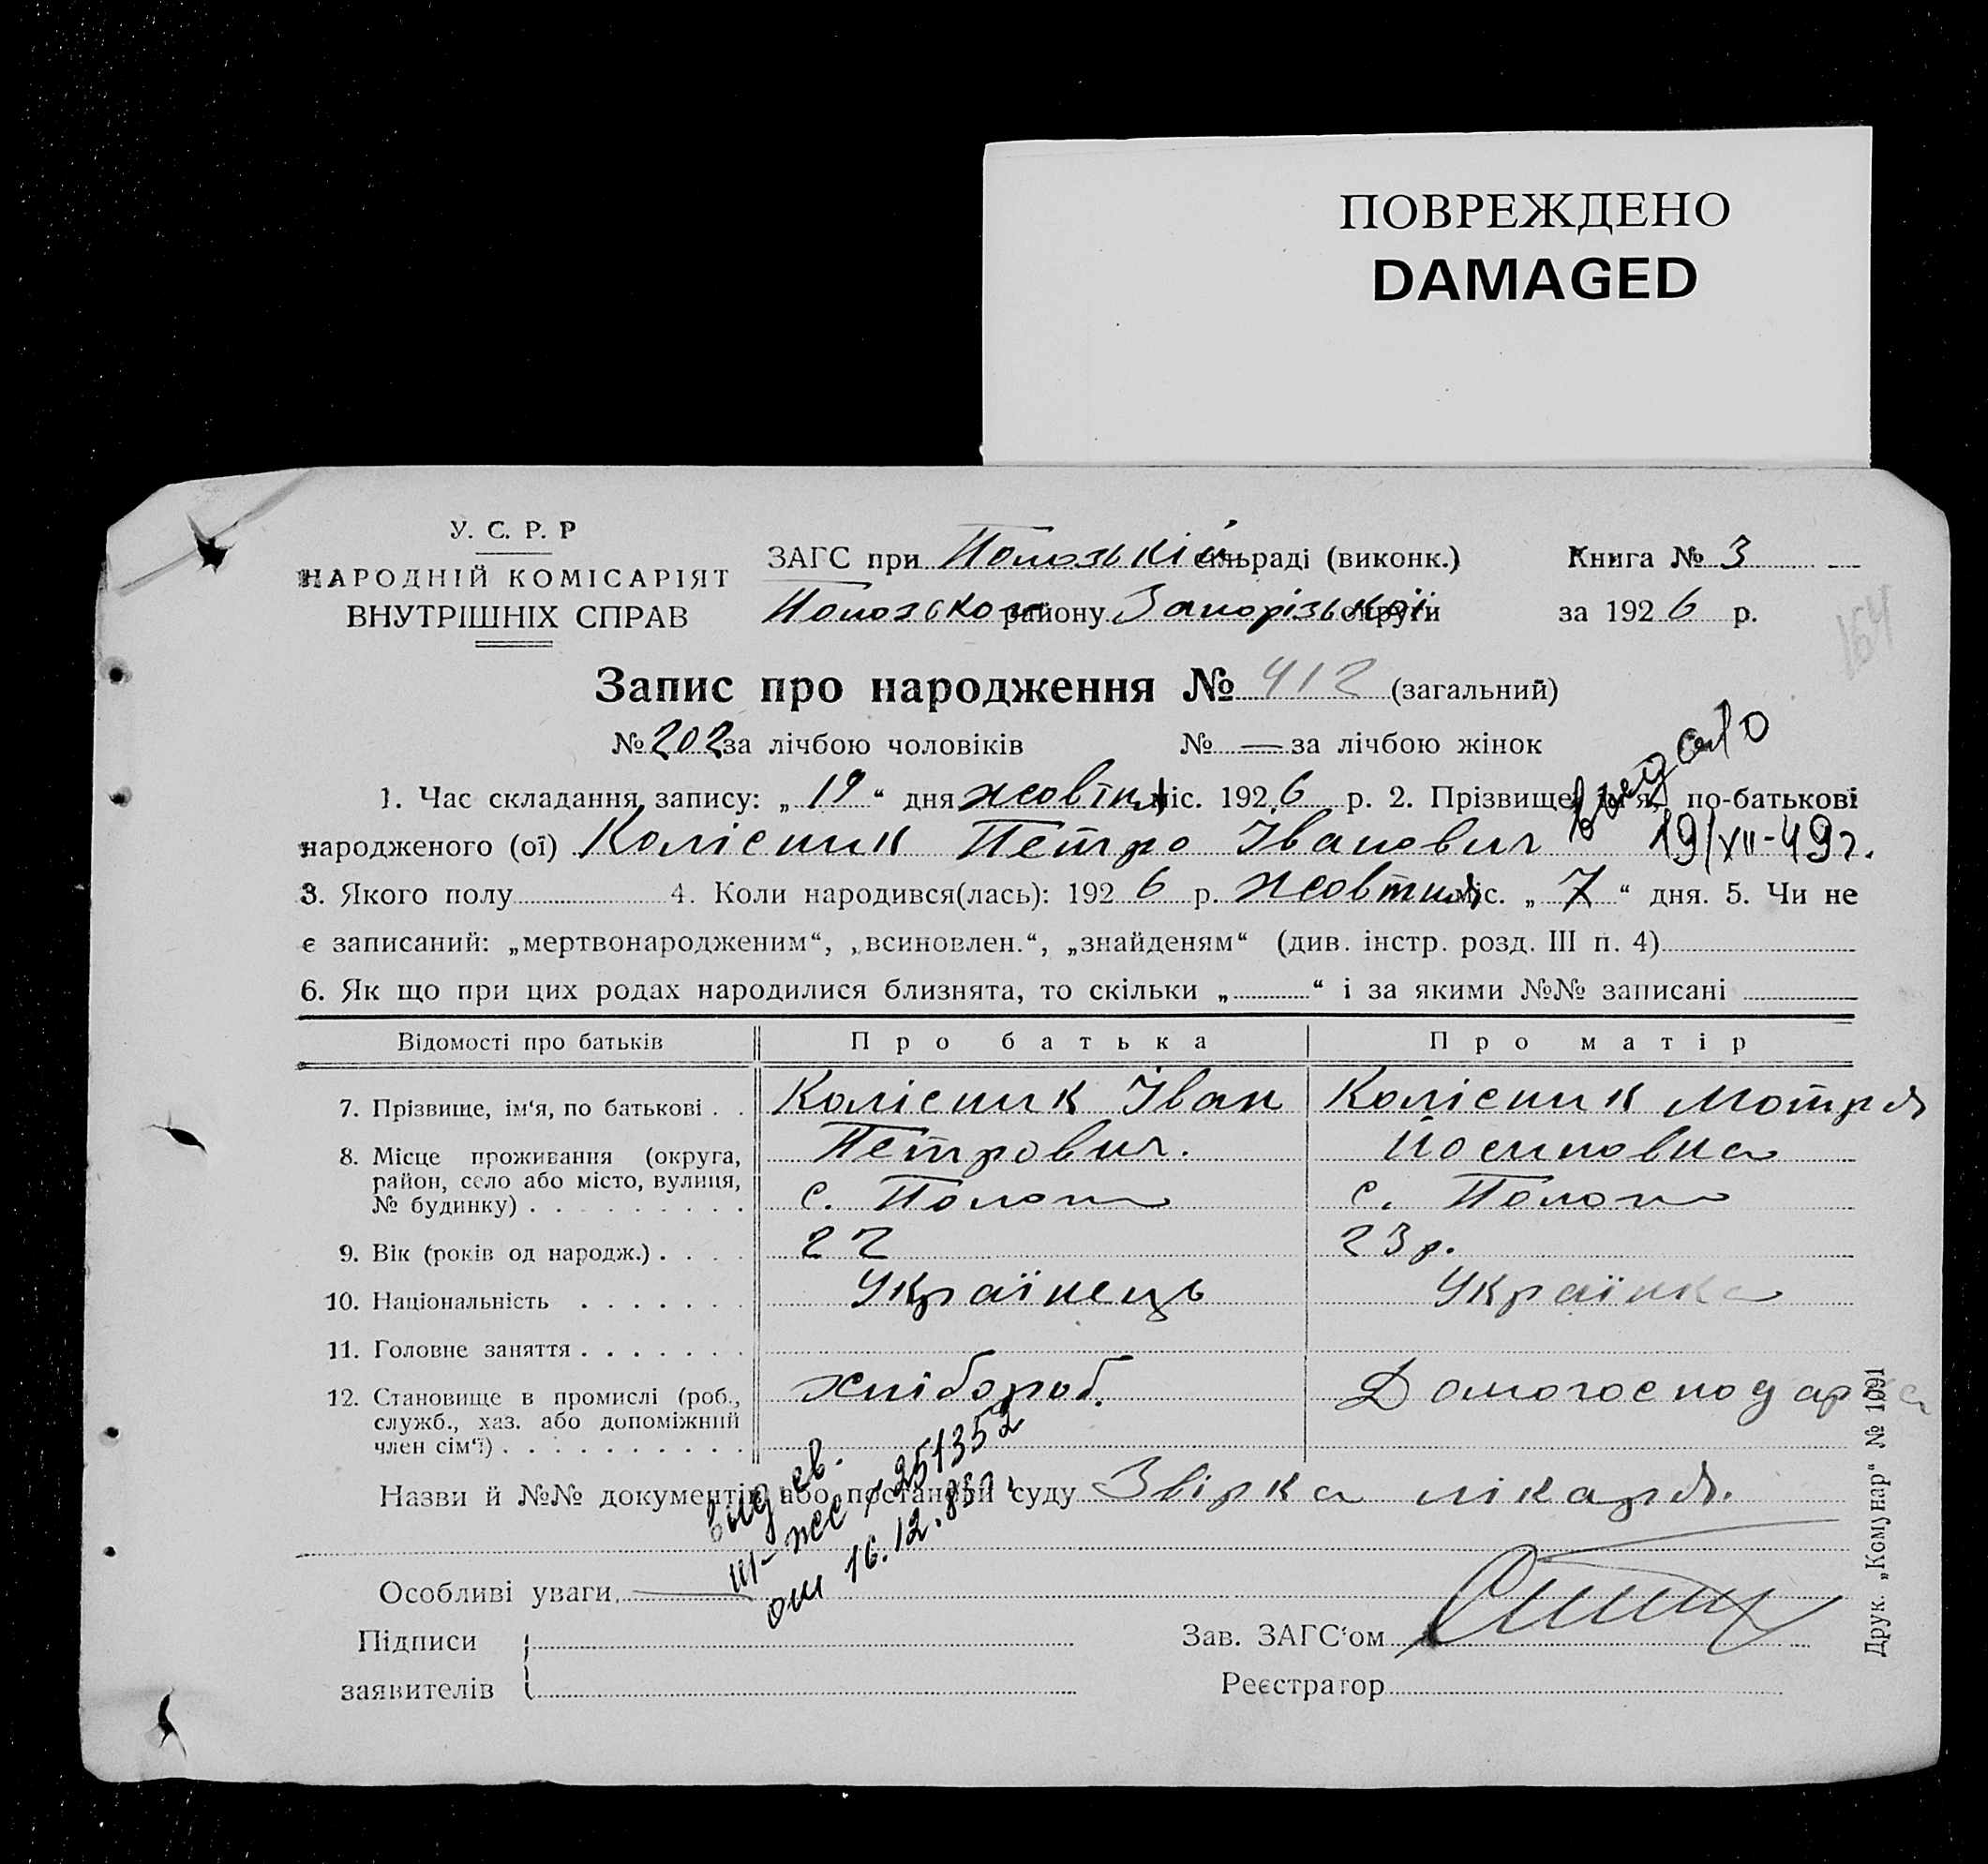 ПОВРЕЖДЕНО
DAMAGED
У. С. Р. Р
НАРОДНІЙ КОМІСАРІЯТ
ВНУТРІШНІХ СПРАВ
ЗАГС при Пологській сільраді (виконк.)
Книга № 3
району Запорізької округи
за 1926 р.
164
Запис про народження № 412 (загальний)
№ 202 за лічбою чоловіків № — за лічбою жінок
видано
1. Час складання запису: „19“ дня жовтня міс. 1926 р. 2. Прізвище, ім'я, по-батькові
народженого (ої) Колісник Петро Іванович 19/XII-49г.
3. Якого полу 4. Коли народився(лась): 1926 р. жовтня міс. „7“ дня. 5. Чи не
є записаний: „мертвонародженим“, „всиновлен.“, „знайденям“ (див. інстр. розд. III п. 4)
6. Як що при цих родах народилися близнята, то скільки „ “ і за якими №№ записані
Відомості про батьків Про батька Про матір
7. Прізвище, ім‘я, по батькові . . Колісник Іван Колісник Мотря
Петрович. Йосиповна
8. Місце проживання (округа,
район, село або місто, вулиця,
№ будинку) . . . . . . . . . с. Пологи с. Пологи
9. Вік (років од народж.) . . . . 22 23 р.
10. Національність . . . . . . . Українець Українка
11. Головне заняття . . . . . . .
12. Становище в промислі (роб.,
служб., хаз. або допоміжний
член сім‘ї) . . . . . . . . . . хлібороб. Домогосподарка
Назви й №№ документів або постанови суду Звірка лікаря.
Вид. св.
251352
от 16.12.
Особливі уваги.
Підписи
заявителів
Зав. ЗАГС‘ом
Реєстратор
Друк. „Комунар“ № 1091